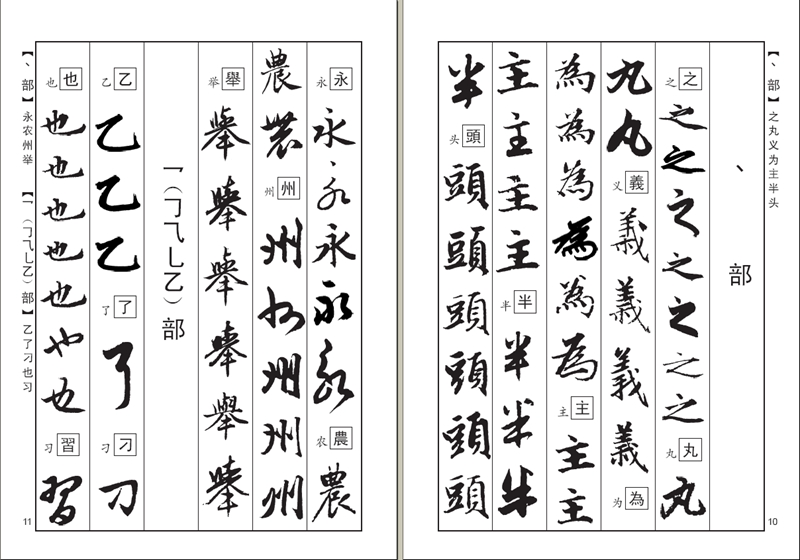 【丶部】之丸义为主半头
10
丶部
之之之之之之之之之丸丸丸
丸丸义義義義義義为為
為為為為為為主主主主
主主主主半半半半半
半头頭頭頭頭頭頭頭
永永永永永永永农農農
農農州州州州州州州
举舉舉舉舉舉舉舉
乛（𠃌⺄乚乙）部
乙乙乙乙乙了了了刁刁刁
也也也也也也也也也习習習
【丶部】永农州举 【乛（𠃌⺄乚乙）部】乙了刁也习
11